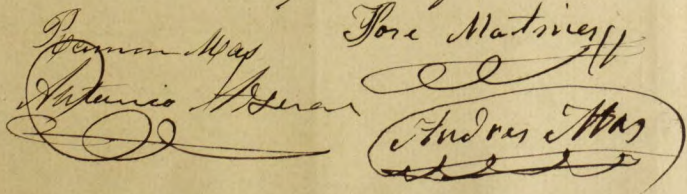 Ramon Mas
Jose Martines
Antonio
Andres Mas